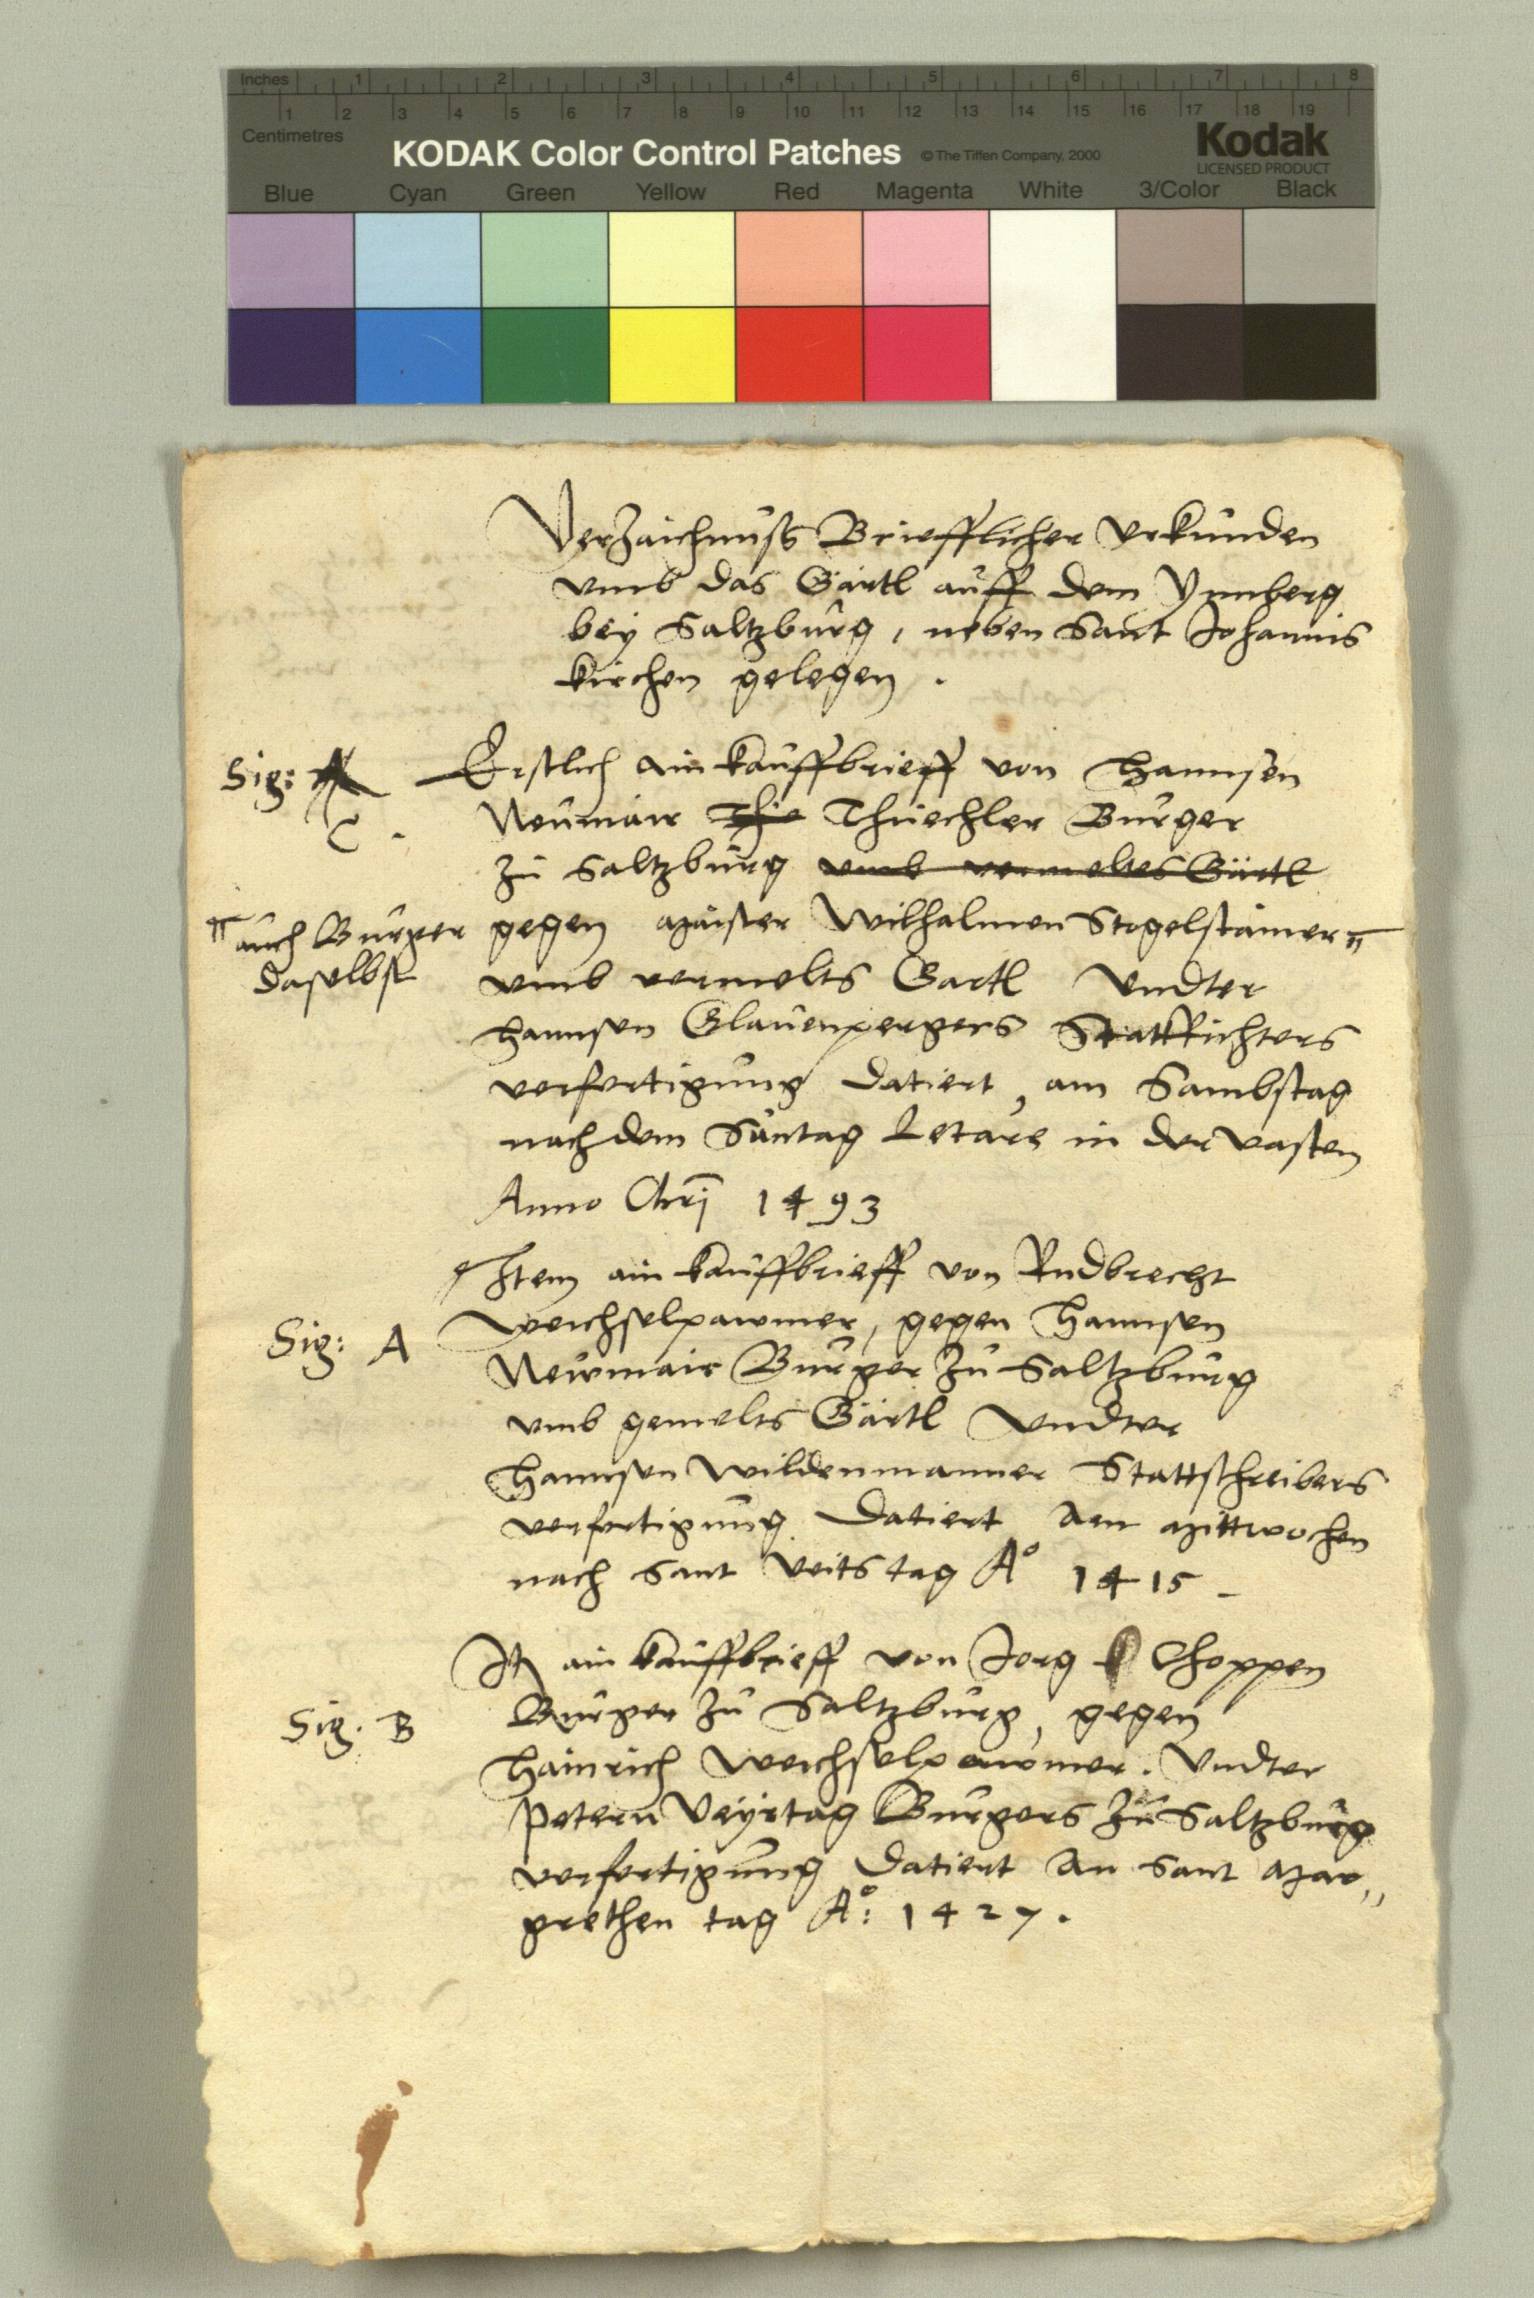 Inches 1 2 3 4 5 6 7 8
1 2 3 4 5 6 7 8 9 10 11 12 13 14 15 16 17 18 19
Centimetres
KODAK Color Control Patches © The Tiffen Company, 2000 Kodak
LICENSED PRODUCT
Blue Cyan Green Yellow Red Magenta White 3/Color Black
Verzaichnuss Briefflicher Urkunden
umb das Gärtl auff dem Ynnberg
bey Saltzburg, neben Sant Johannis
kirchen gelegen .
Sig: A
C .
Erstlich ain kauffbrieff von Hannsen
Neumair Thie Thuechler Burger
zu Saltzburg umb vermeltes Gärtl
gegen Maister Wilhalmen Stogelstamer
auch Burger
daselbst
umb vermelts Gartl Undter
Hannsen Glauenpergers StattRichters
verfertigung datiert, am Sambstag
nach dem Suntag Letare in der vasten
Anno Chri 1493
Item ain kauffbrieff von Rudbrecht
Sig: A
Weichselpawmer, gegen Hannsen
Neumair Burger zu Saltzburg
umb gemelts Gärtl Undter
Hannsen Wildenmanner Stattschreibers
verfertigung Datiert Am Mittwochen
nach Sant Veits tag Aº 1415 –
It ain kauffbrieff von Jorg Choppen
Sig. B
Burger zu Saltzburg, gegen
Hainrich Weichselpawmer. Undter
Petern Veyrtag Burgers zu Saltzburg
verfertigung Datiert An Sant Mar„
grethen tag Aº: 1427.